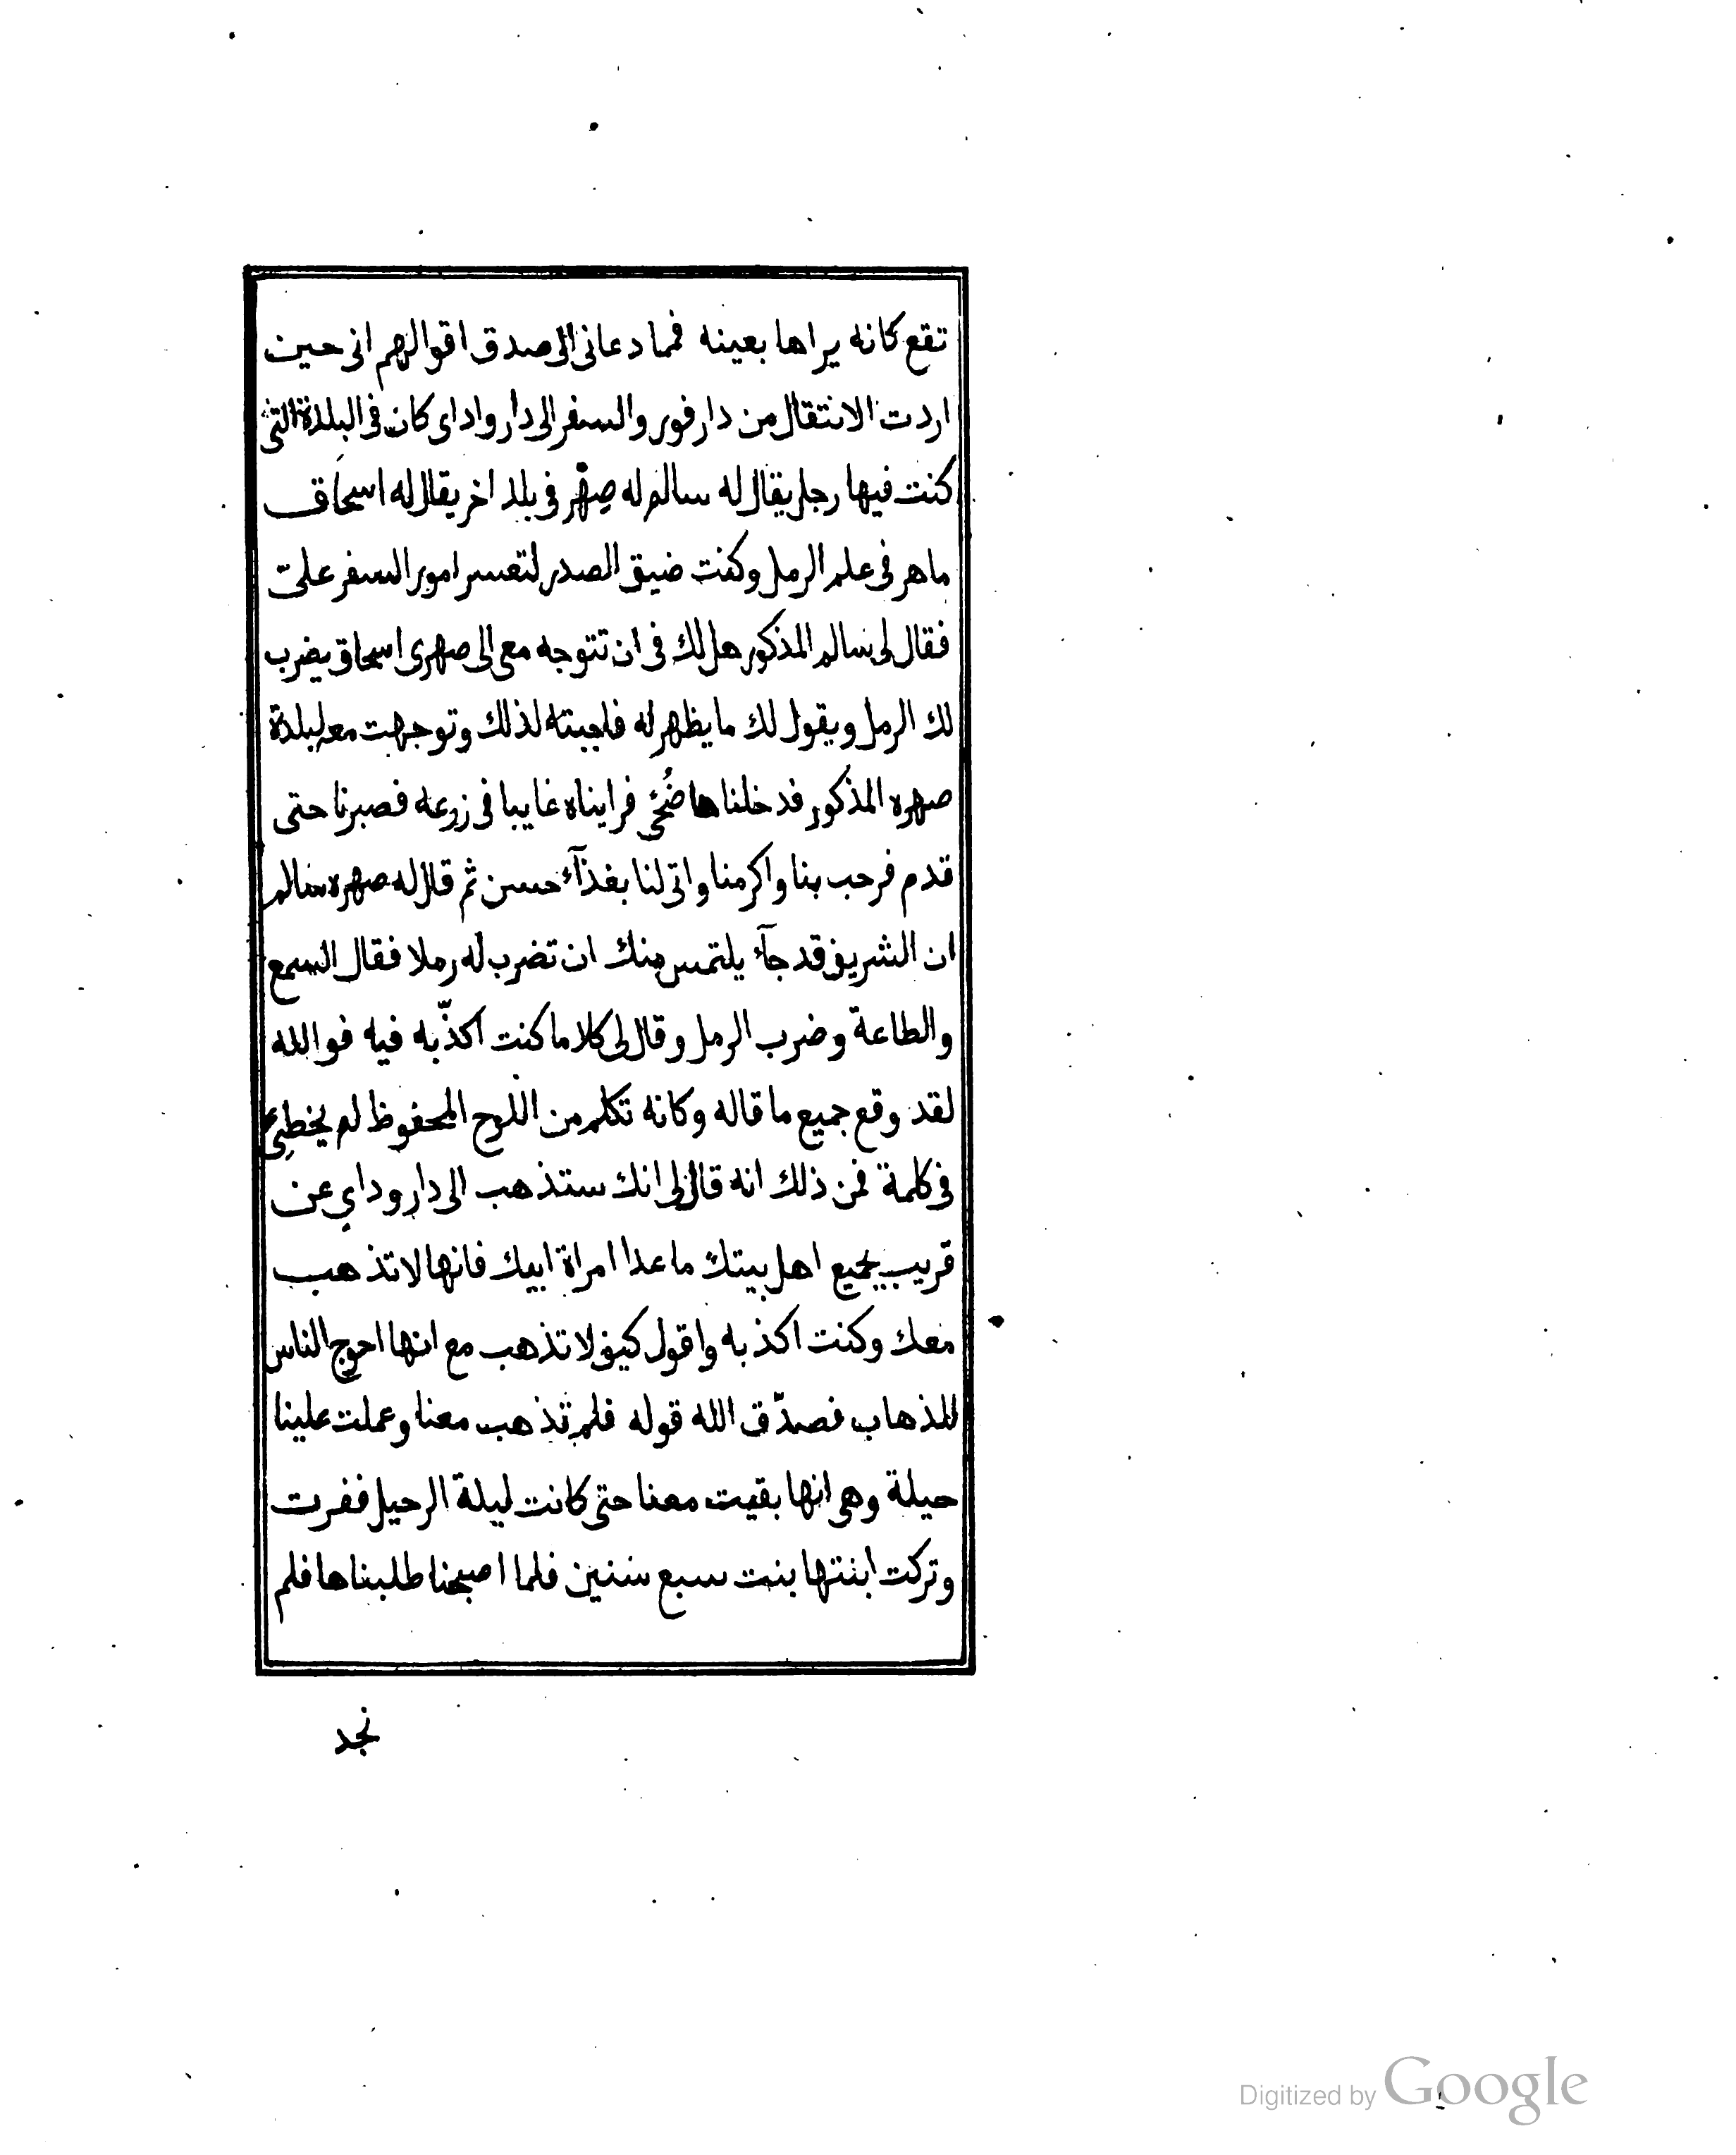 تقع كانه يراها بعينه فمما دعانى الى صدق اقوالهم انى حين
اردت الانتقال من دار فور والسفر الى دار واداى كان فى البلدة التى
كنت فيها رجل يقال له سالم له صِهْر فى بلد اخر يقال له اسحَاق
ماهر فى علم الرمل وكنت ضيق الصدر لتعسر امور السفر علىّ
فقال لى سالم المذكور هل لك فى ان تتوجه معى الى صهرى اسحاق يضرب
لك الرمل ويقول لك ما يظهر له فاجبته لذلك وتوجهت معه لبلدة
صهره المذكور فدخلناها ضُحًى فرايناه غايبا فى زرعه فصبرنا حتى
قدم فرحب بنا واكرمنا واتى لنا بغذآء حسن ثم قال له صهره سالم
ان الشريف قد جآء يلتمس منك ان تضرب له رملا فقال السمع
والطاعة وضرب الرمل وقال لى كلاما كنت اكذّبه فيه فوالله
لقد وقع جميع ما قاله وكانه تكلم من اللوح المحفوظ لم يخطِئ
فى كلمة فمن ذلك انه قال لى انك ستذهب الى دار وداي عن
قريب بجميع اهل بيتك ما عدا امراة ابيك فانها لا تذهب
معك وكنت اكذبه واقول كيف لا تذهب مع انها احوج الناس
للذهاب فصدّق الله قوله فلم تذهب معنا وعملت علينا
حيلة وهى انها بقيت معنا حتى كانت ليلة الرحيل ففرت
وتركت ابنتها بنت سبع سنين فلما اصبحنا طلبناها فلم
نجد
Digitized by Google